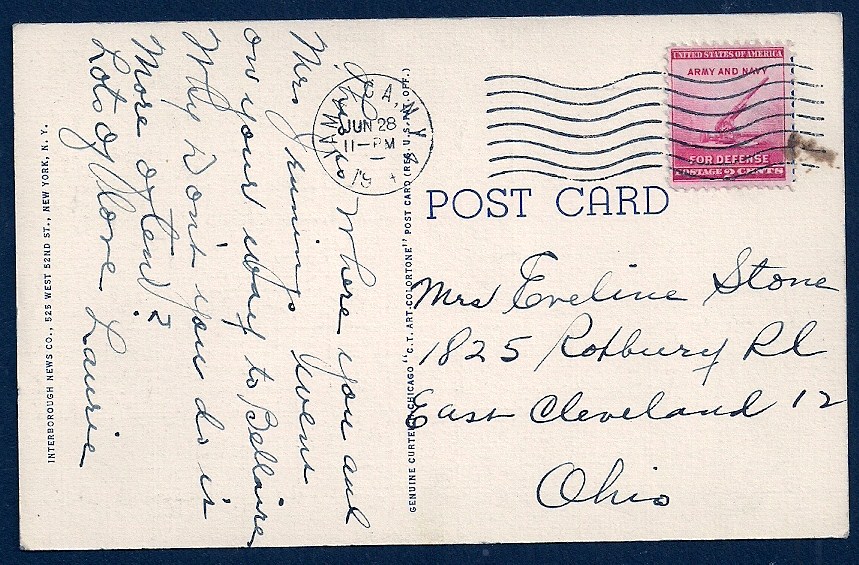 This is where you and
Mrs Jennings went
on your way to Bellaire
Why Don't you do is
More often?
Lots of Love Laurie
JUN 28
11-PM
19
UNITED STATES OF AMERICA
ARMY AND NAVY
FOR DEFENSE
POSTAGE 2 CENTS
POST CARD
Mrs Eveline Stone
1825 Roxbury Rd
East Cleveland 12
Ohio
GENUINE CURTEICH-CHICAGO "C.T. ART-COLORTONE" POST CARD (REG. U.S. PAT. OFF.)
INTERBOROUGH NEWS CO., 525 WEST 52ND ST., NEW YORK, N. Y.